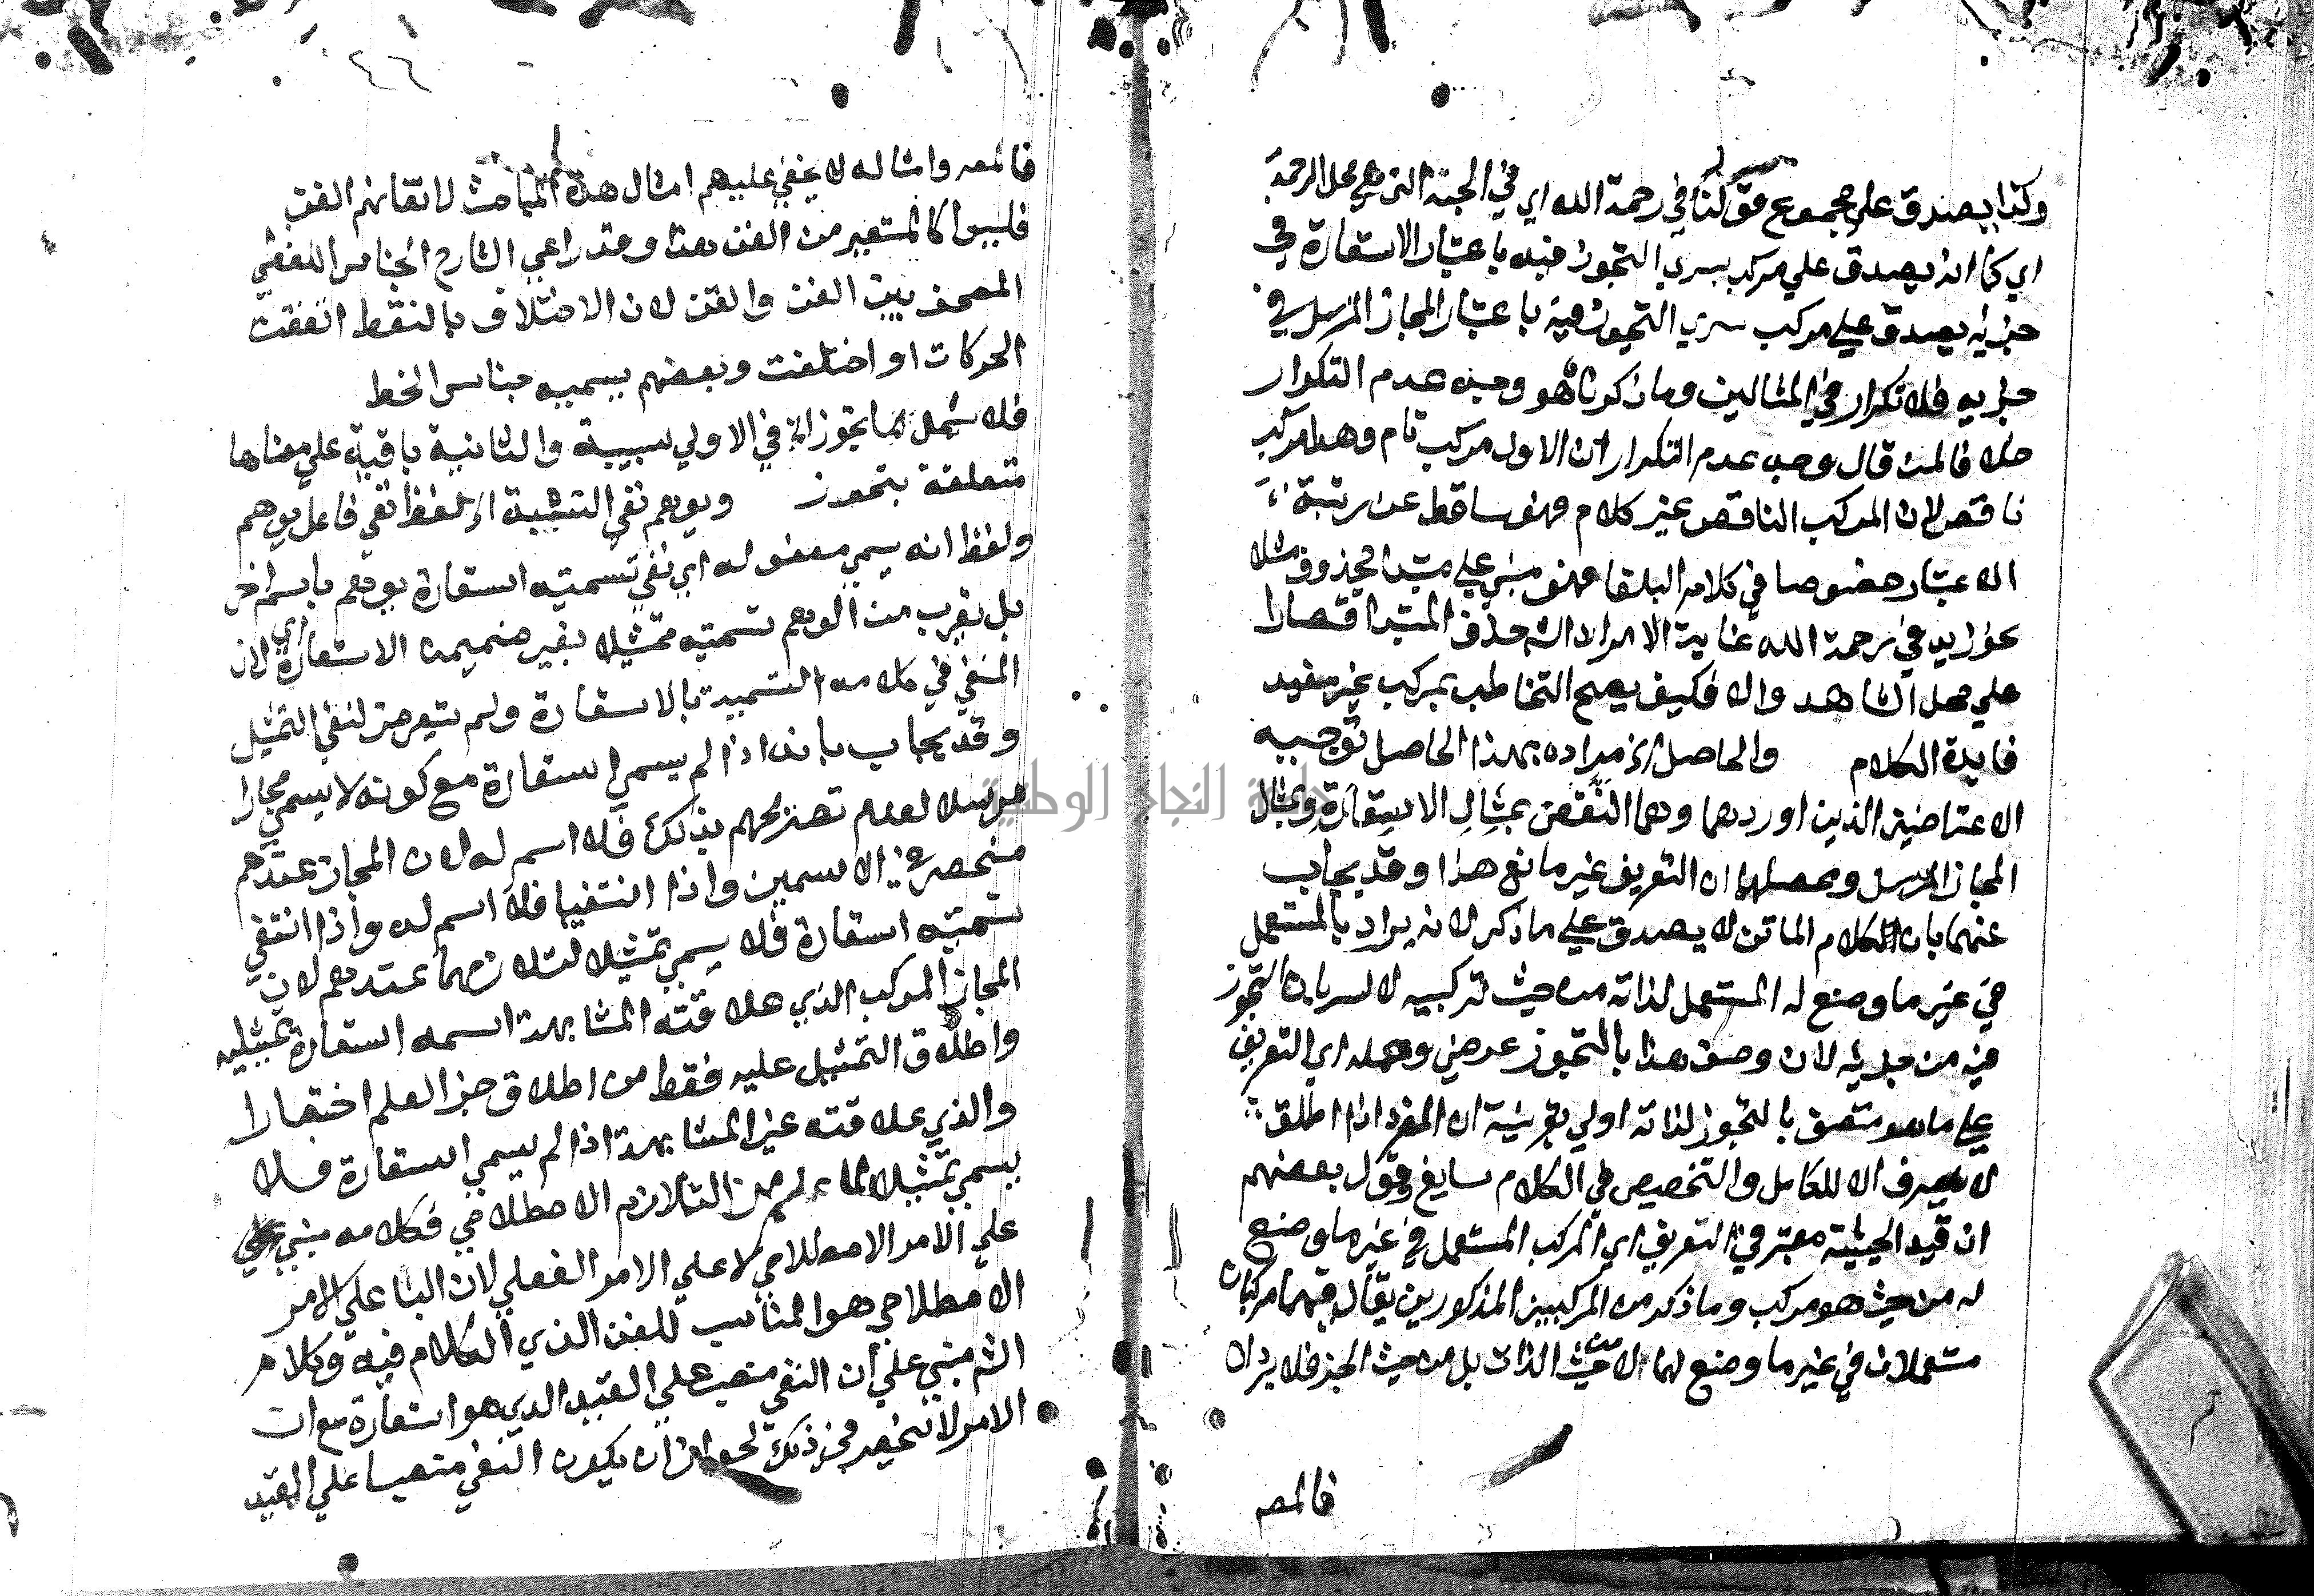 وكذا يصدق على مجموع قولنا في رحمة الله اي في الجنة التي هي محل الرحمة
اي كما انه يصدق علي مركب سري التجوز فيه باعتبار الاستعارة في
جزئيه يصدق علي مركب سري التجوز فيه باعتبار المجاز المرسل في
جزييه فلا تكرار في المثالين وما ذكرناه هو وجه عدم التكرار
خلافا لمن قال وجه عدم التكرار ان الاول مركب تام وهذا مركب
ناقص لان المركب الناقص غير كلام فهو ساقط عن رتبة
الاعتبار خصوصا في كلام البلغا فهو مبني علي مبتدا محذوف مثلا
نحو زيد في رحمة الله غاية الامر ان الش حذف المبتدا اقتصارا
علي محل الشاهد والا فكيف يصح التخاطب بمركب غير مفيد
فايدة الكلام والحاصل الخ مراده بهذا الحاصل توجيه
الاعتراضين الذين اوردهما وهما النقض بمثال الاستعارة وبمثال
المجاز المرسل ومحصلهما ان التعريف غير مانع هذا وقد يجاب
عنهما بان الكلام الماتن لا يصدق علي ما ذكر لانه يراد بالمستعمل
في غير ما وضع له المستعمل لذاته من حيث تركيبه لا لسريان التجوز
فيه من جزئيه لان وصف هذا بالتجوز عرضي وحمله اي التعريف
علي ما هو متصف بالتجوز لذاته اولي بقرينة ان المفرد اذا اطلق
لا يصرف الا للكامل والتخصيص في الكلام سايغ وقول بعضهم
ان قيد الحيثية معتبر في التعريف اي المركب المستعمل في غير ما وضع
له من حيث هو مركب وما ذكر من المركبين المذكورين يقال فيهما مركبان
مستعملان في غير ما وضع لهما لا من حيث الذات بل من حيث الجزء فلا يردان
فالمصـ
٤٦
فالمصـ وامثاله لا يخفي عليهم امثال هذه المباحث لاتقانهم الفن
فليس كالمستعير من الفن هذا وقد راعي الشارح الجناس اللفظي
المصحف بين الفن والقن لان الاختلاف بالنقط اتفقت
الحركات او اختلفت وبعضهم يسميه جناس الخط
فلا يشمل ما تجوز الخ في الاولي سببية والثانية باقية علي معناها
متعلقة بتجوز ويوهم نفي التشبيه الخ لفظ نفي فاعل يوهم
ولفظ انه يسمي مفعوله اي نفي تسميته استعارة يوهم باسم اخر
بل يقرب من الوهم تسميته تمثيلا بغير ضميمة الاستعارة اي لان
المنفي في كلامه التسمية بالاستعارة ولم يتعرض لنفي التمثيل
وقد يجاب بانه اذا لم يسمي استعارة مع كونه لا يسمي مجازا
مرسلا لعدم تصريحهم بذلك فلا اسم له لان المجاز عندهم
منحصر في الاسمين واذا انتفيا فلا اسم له واذا انتفي
تسميته استعارة فلا يسمي تمثيلا لتلازمهما عندهم لان
المجاز المركب الذي علاقته المشابهة اسمه استعارة تمثيلية
واطلاق التمثيل عليه فقط من اطلاق جز العلم اختصارا
والذي علاقته غير المشابهة اذا لم يسمي استعارة فلا
يسمي تمثيلا لما علم من التلازم الاصطلاحي فكلامه مبني علي
علي الامر الاصطلاحي لا علي الامر الفعلي لان البنا علي الامر
الاصطلاحي هو المناسب للفن الذي الكلام فيه وكلام
الش مبني علي ان النفي منصب علي القيد الذي هو استعارة مع ان
الامر لا ينحصر في ذلك لجواز ان يكون النفي منصبا علي القيد